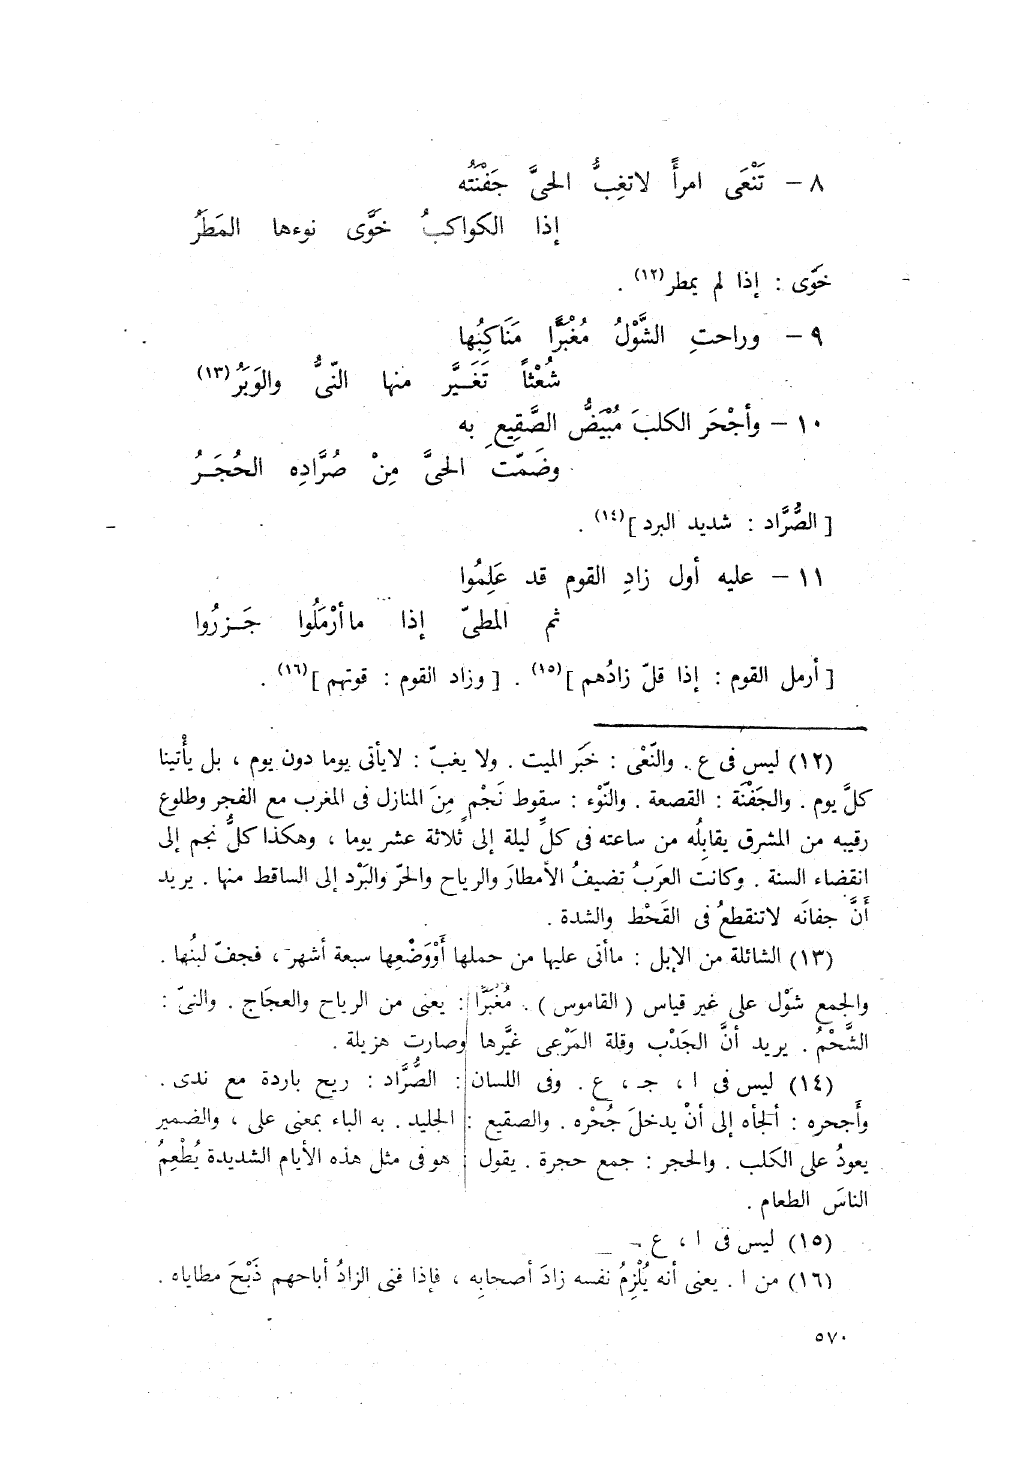 ٨ – تَنْعَى امرأً لاتغِبُّ الحىَّ جَفْنَتُه
إذا الكواكبُ خَوَّى نوءها المَطَرُ
خَوّى : إذا لم يمطر(١٢) .
٩ – وراحتِ الشَّوْلُ مُغْبَرًّا مَنَاكِبُها
شُعْثاً تَغَيَّر منها النّىُّ والوَبَرُ(١٣)
١٠ – وأجْحَر الكلبَ مُبْيَضُّ الصَّقِيعِ به
وضَمّت الحىَّ مِنْ صُرَّادِه الحُجَرُ
[ الصُّرَّاد : شديد البرد ](١٤) .
١١ – عليه أول زادِ القوم قد عَلِمُوا
ثم المطىّ إذا ماأرْمَلُوا جَزرُوا
[ أرمل القوم : إذا قلّ زادُهم ](١٥) . [ وزاد القوم : قوتهم ](١٦) .
(١٢) ليس فى ع . والنّعْى : خبَر الميت . ولا يغبّ : لايأتى يوما دون يوم ، بل يأْتينا
كلَّ يوم . والجَفْنَة : القصعة . والنّوْء : سقوط نَجْمٍ مِنَ المنازل فى المغرب مع الفجر وطلوع
رقيبه من المشرق يقابِلُه من ساعته فى كلِّ ليلة إلى ثلاثة عشر يوما ، وهكذا كلُّ نجم إلى
انقضاء السنة . وكانت العرَبُ تضيفُ الأمطارَ والرياح والحرّ والبَرْد إلى الساقط منها . يريد
أنَّ جفانَه لاتنقطعُ فى القَحْط والشدة .
(١٣) الشائلة من الإبل : ماأتى عليها من حملها أَوْوَضْعِها سبعة أشهر ، فجفّ لبنُها .
والجمع شَوْل على غير قياس ( القاموس ) . مُغْبَرًّا : يعنى من الرياح والعجَاج . والنىّ :
الشَّحْمُ . يريد أنَّ الجَدْب وقلة المَرْعى غيَّرها وصارت هزيلة .
(١٤) ليس فى ا ، جـ ، ع . وفى اللسان : الصُّرَّاد : ريح باردة مع ندى .
وأَجحره : ألجأه إلى أنْ يدخلَ جُحْره . والصقيع : الجليد . به الباء بمعنى على ، والضمير
يعودُ على الكلب . والحجر : جمع حجرة . يقول : هو فى مثل هذه الأيام الشديدة يُطْعِمُ
الناسَ الطعام .
(١٥) ليس فى ا ، ع .
(١٦) من ا . يعنى أنه يُلْزِمُ نفسه زادَ أصحابِه ، فإذا فنى الزادُ أباحهم ذَبْحَ مطاياه .
٥٧٠